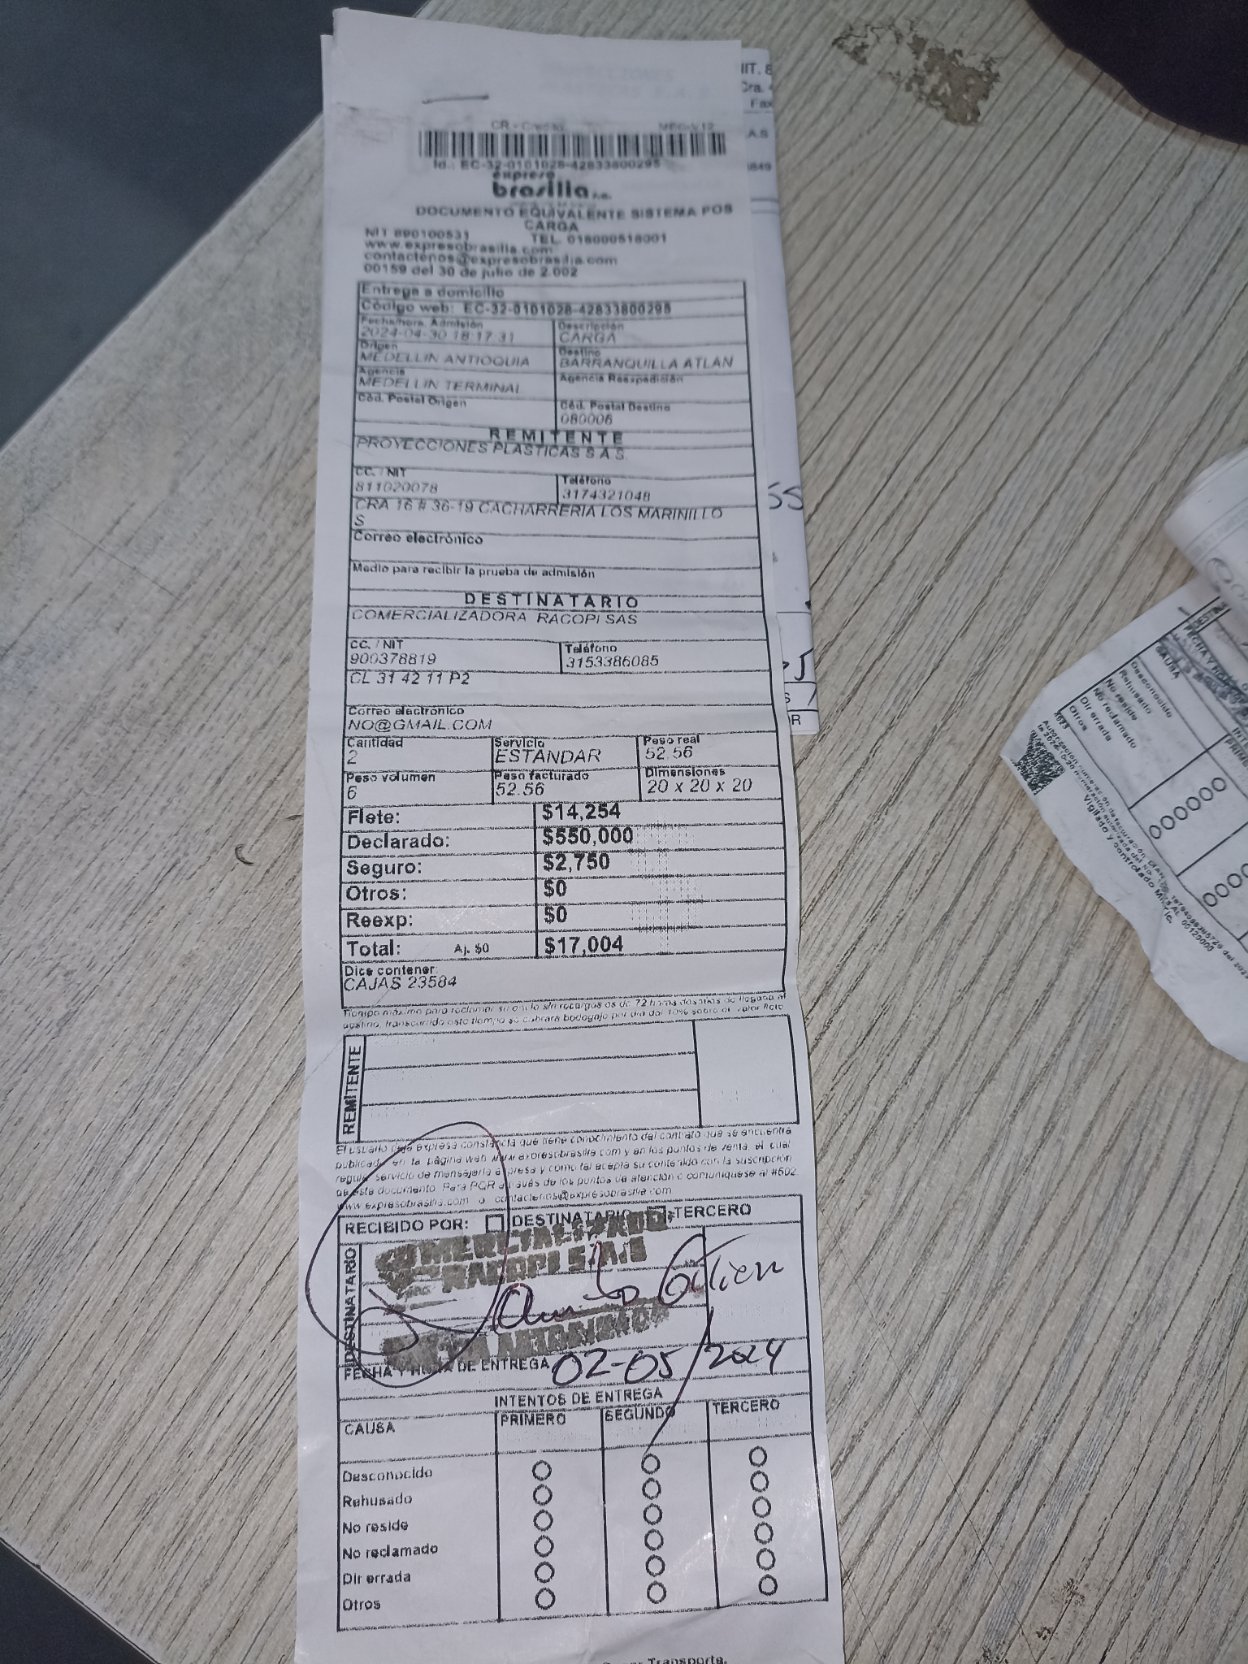 CR - Credito
Id.: EC-32-0101028-42833800295
expreso
brasilia s.a.
DOCUMENTO EQUIVALENTE SISTEMA POS
CARGA
NIT 890100531 TEL. 018000518001
www.expresobrasilia.com
contactenos@expresobrasilia.com
00159 del 30 de julio de 2.002
Entrega a domicilio
Código web: EC-32-0101028-42833800295
Fecha/hora. Admisión Descripción
2024-04-30 18:17:31 CARGA
Origen Destino
MEDELLIN ANTIOQUIA BARRANQUILLA ATLAN
Agencia Agencia Reexpedición
MEDELLIN TERMINAL
Cód. Postal Origen Cód. Postal Destino
080006
REMITENTE
PROYECCIONES PLASTICAS S A S
CC. / NIT Teléfono
811020078 3174321048
CRA 16 # 36-19 CACHARRERIA LOS MARINILLO
S
Correo electrónico
Medio para recibir la prueba de admisión
DESTINATARIO
COMERCIALIZADORA RACOPI SAS
CC. / NIT Teléfono
900378819 3153386085
CL 31 42 11 P2
Correo electrónico
NO@GMAIL.COM
Cantidad Servicio Peso real
2 ESTANDAR 52.56
Peso volumen Peso facturado Dimensiones
6 52.56 20 x 20 x 20
Flete: $14,254
Declarado: $550,000
Seguro: $2,750
Otros: $0
Reexp: $0
Total: Aj. $0 $17,004
Dice contener:
CAJAS 23584
REMITENTE
El usuario deja expresa constancia que tiene conocimiento del contrato que se encuentra
publicado en la página web www.expresobrasilia.com y en los puntos de venta, el cual
regula servicio de mensajería expresa y como tal acepta su contenido con la suscripción
de este documento. Para PQR a través de los puntos de atención o comuníquese al #502
www.expresobrasilia.com o contactenos@expresobrasilia.com
RECIBIDO POR: DESTINATARIO TERCERO
DESTINATARIO
RACOPI S.A.S
FECHA Y HORA DE ENTREGA 02-05/2024
INTENTOS DE ENTREGA
CAUSA PRIMERO SEGUNDO TERCERO
Desconocido
Rehusado
No reside
No reclamado
Dir errada
Otros
NIT. 8
Cra.
Fax
A.S
Desconocido
Rehusado
No reside
No reclamado
Dir errada
Otros